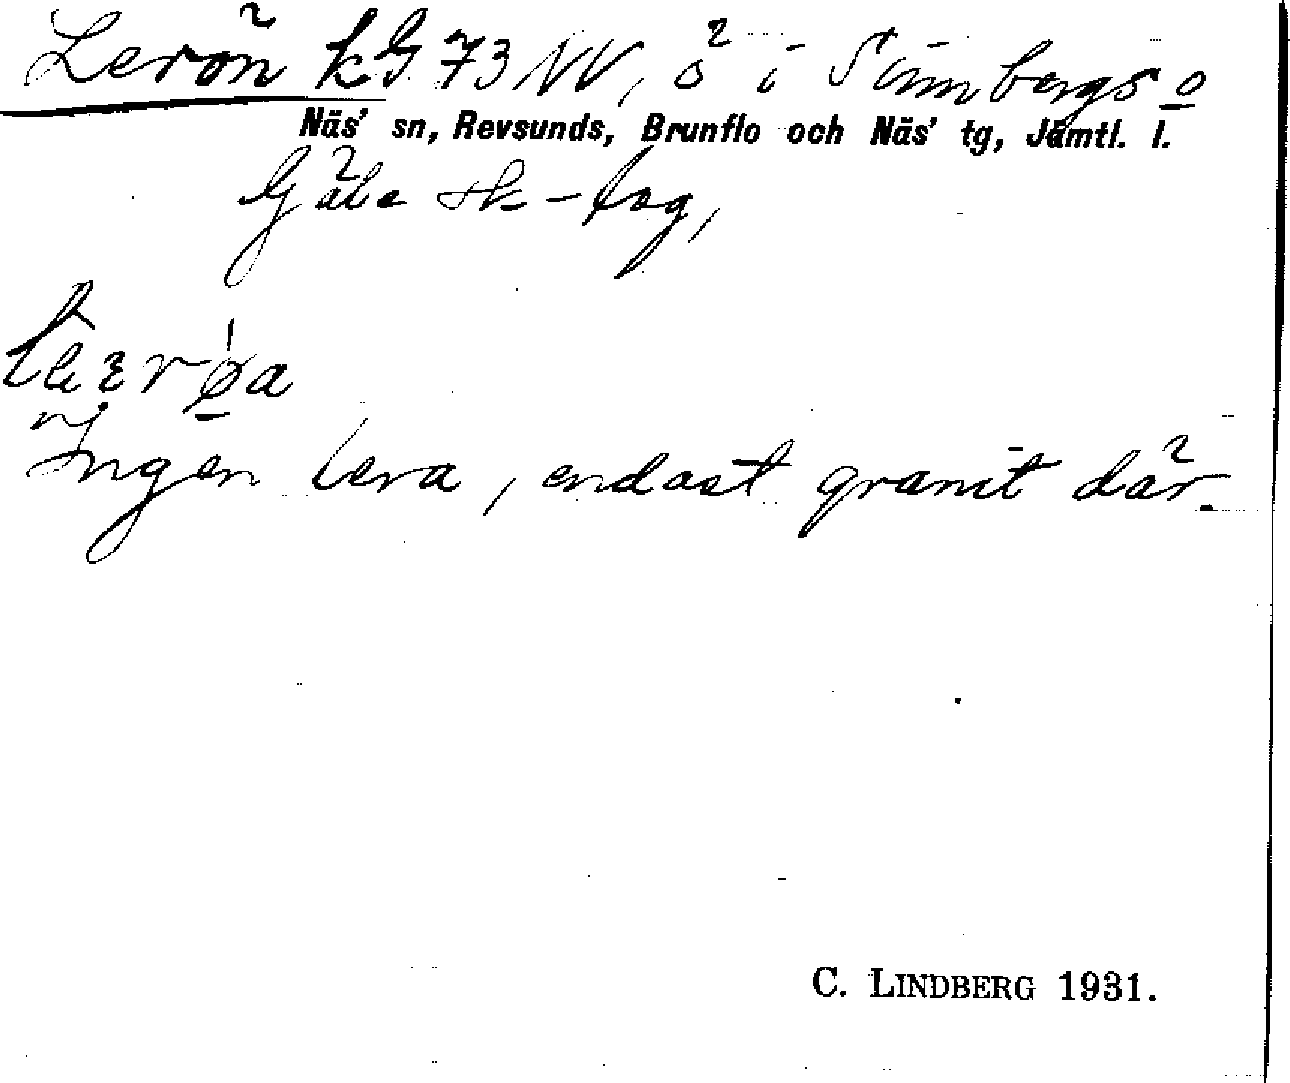 Lerön kG 73 NV, ö i Sinnbergs o
Näs' sn, Revsunds, Brunflo och Näs' tg, Jämtl. l.
Gåle sk-lag,
Ingen lera, endast granit där.
C. LINDBERG 1931.